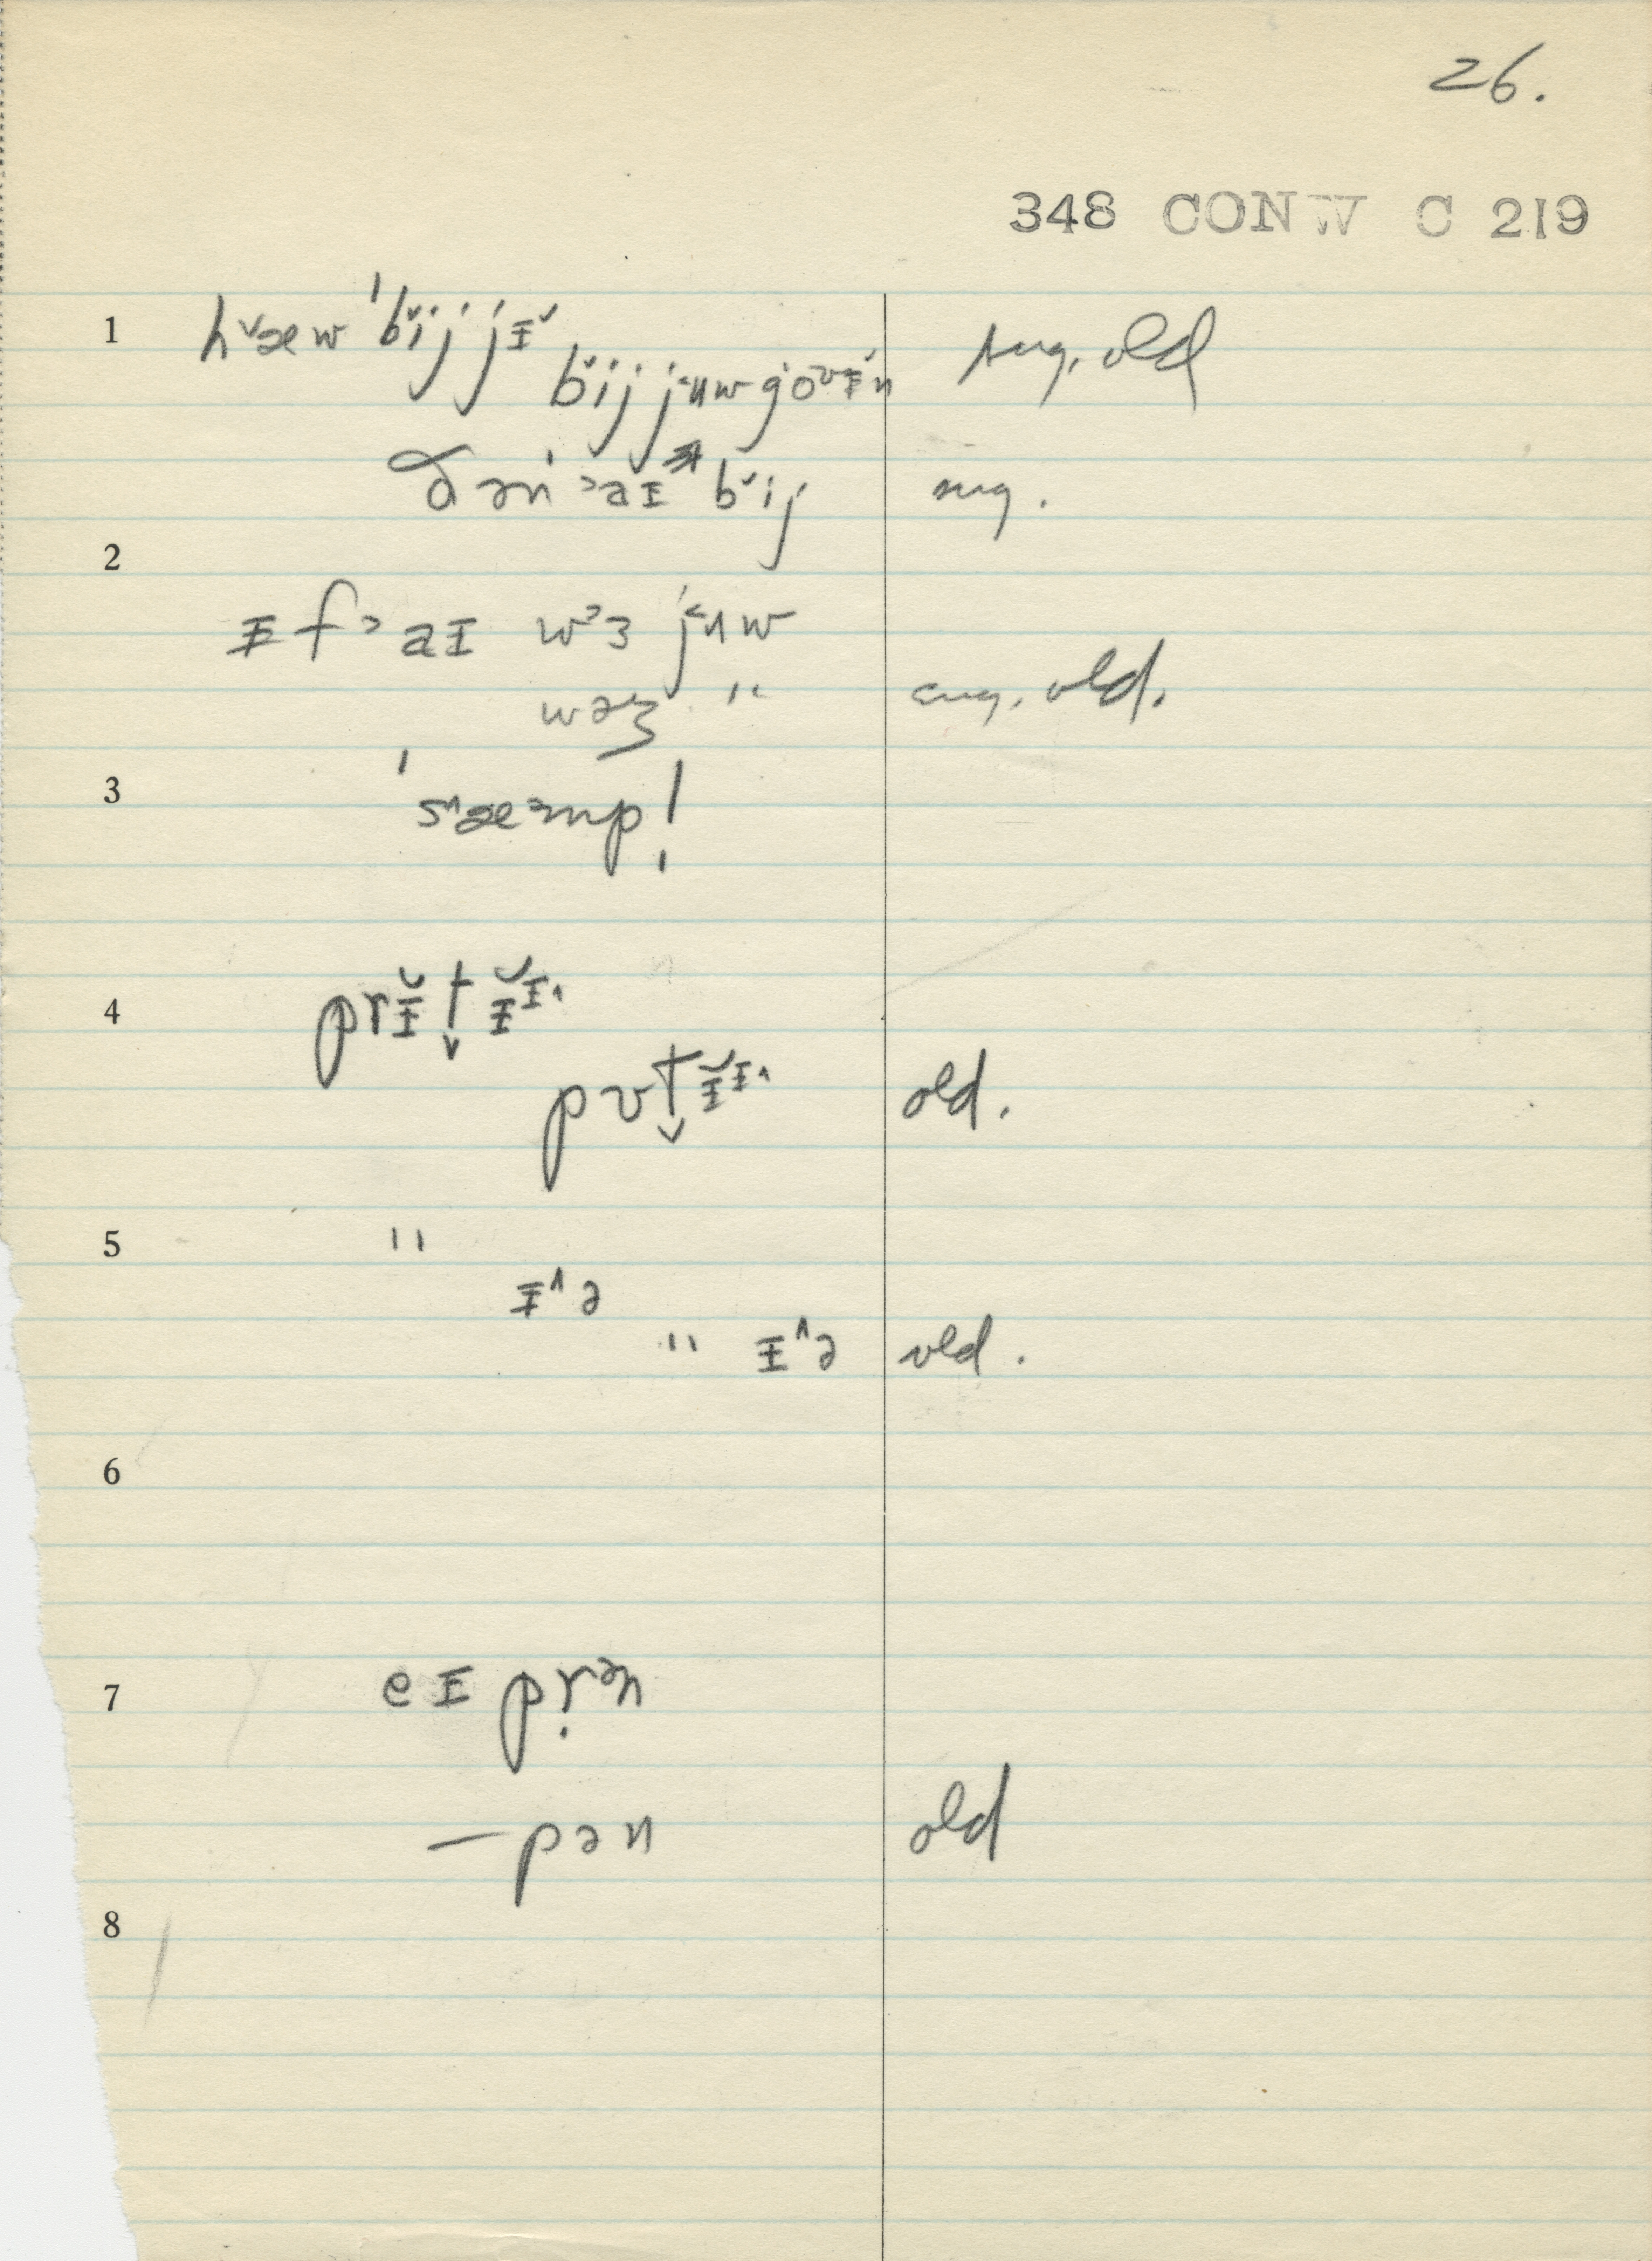 26.
348 CONW C 219
1 h˅æw ˈb˅ij jɪ˅
b˅ij j˂uw goʊɪ˅n sug. old
ən ˃aɪ b˅ij sug.
2
ɪf ˃aɪ w˃ɜ j˂uw
wəʒ " sug. old.
3 ˈs˄æ˃mp!
4 prɪ̆t˅ɪ̆ɪ˄
pʊt˅ɪ̆ɪ˄ old.
5 "
ɪ˄ə
" ɪ˄ə old.
6
7 eɪ prə̣n
— pən old
8